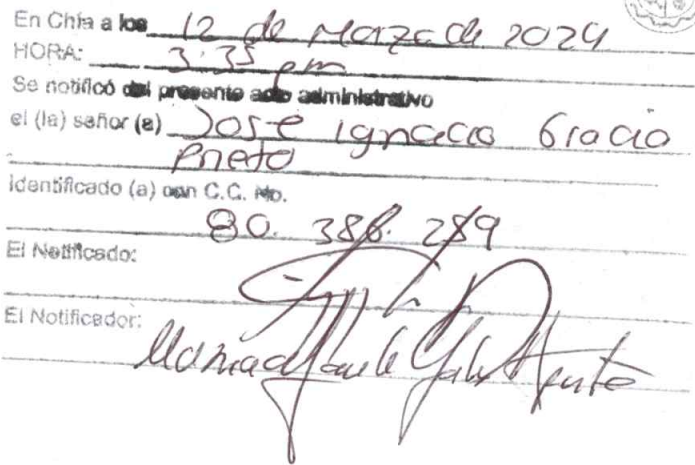 En Chía a los 12 de Marzo de 2024
HORA: 3:35 pm
Se notificó del presente acto administrativo
el (la) señor (a) José Ignacio Gracia
Prieto
identificado (a) con C.C. No.
80.386.289
El Notificado:
El Notificador: